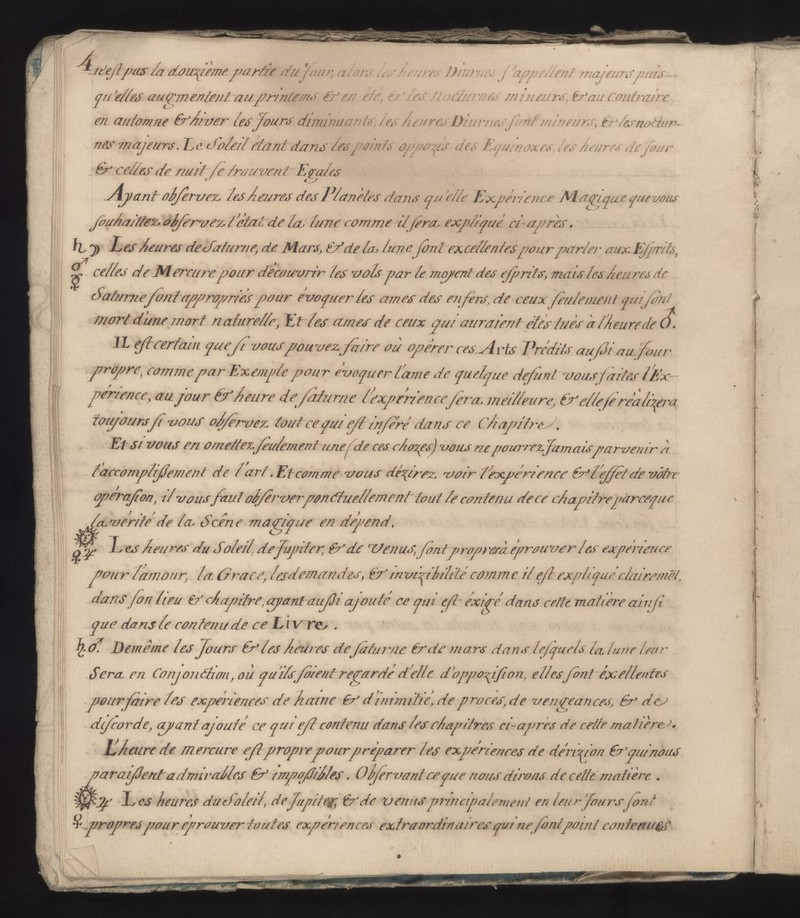 4
n'est pas la douzième partie du Jour, alors les heures Diurnes s'appellent majeurs puis-
qu'elles augmentent au printems & en été, & les nocturnes mineurs, & au Contraire
en automne & hiver les Jours diminuants, les heures Diurnes sont mineurs, & les noctur-
nes majeurs. Le Soleil étant dans les points oppozés des Equinoxes, les heures de Jour
& celles de nuit se trouvent Egales
Ayant observez les heures des Planètes dans qu'elle Expérience Magique que vous
souhaittez observez l'état de la lune comme il sera expliqué ci-après.
♄ ☽ Les heures de Saturne, de Mars, & de la lune sont excellentes pour parler aux Esprits,
♂ ☿ celles de Mercure pour découvrir les vols par le moyent des esprits, mais les heures de
Saturne sont appropriés pour évoquer les ames des enfers, de ceux seulement qui sont
mort d'une mort naturelle, Et les ames de ceux qui auraient étés tués à l'heure de ♂.
IL est certain que si vous pouvez faire où opérer ces Arts Prédits aussi au Jour
propre, comme par Exemple pour évoquer l'ame de quelque defunt vous faites l'Ex-
périence, au jour & heure de saturne l'expérience sera meilleure, & elle se réalizera
toujours si vous observez tout ce qui est inséré dans ce Chapitre.
Et si vous en omettez seulement une (de ces chozes) vous ne pourrez Jamais parvenir à
l'accomplissement de l'art. Et comme vous dézirez voir l'expérience & l'effet de vôtre
opérasion, il vous faut observer ponctuellement tout le contenu de ce chapitre parceque
la vérité de la Scêne magique en dépend.
☉ ♀ ♃ Les heures du Soleil, de Jupiter, & de Venus, sont propres à éprouver les expérience
pour l'amour, la Grace, les demandes, & invizibilité comme il est expliqué clairemēt,
dans son lieu & chapitre, ayant aussi ajouté ce qui est éxigé dans cette matière ainsi
que dans le contenu de ce Livre.
♄ ♂ Demême les Jours & les heures de saturne & de mars dans lesquels la lune leur
Sera en Conjonction, où qu'ils soient regardé d'elle d'oppozision, elles sont éxellentes
pour faire les expériences de haine & d'inimitié, de procès, de vengeances, & de
discorde, ayant ajouté ce qui est contenu dans les chapitres ci-après de cette matière.
L'heure de mercure est propre pour préparer les expériences de dérizion & qui nous
paraissent admirables & impossibles. Observant ce que nous dirons de cette matière.
☉ ♃ Les heures du Soleil, de Jupiter, & de venus principalement en leur Jours sont
♀ propres pour éprouver toutes expériences extraordinaires qui ne sont point contenues